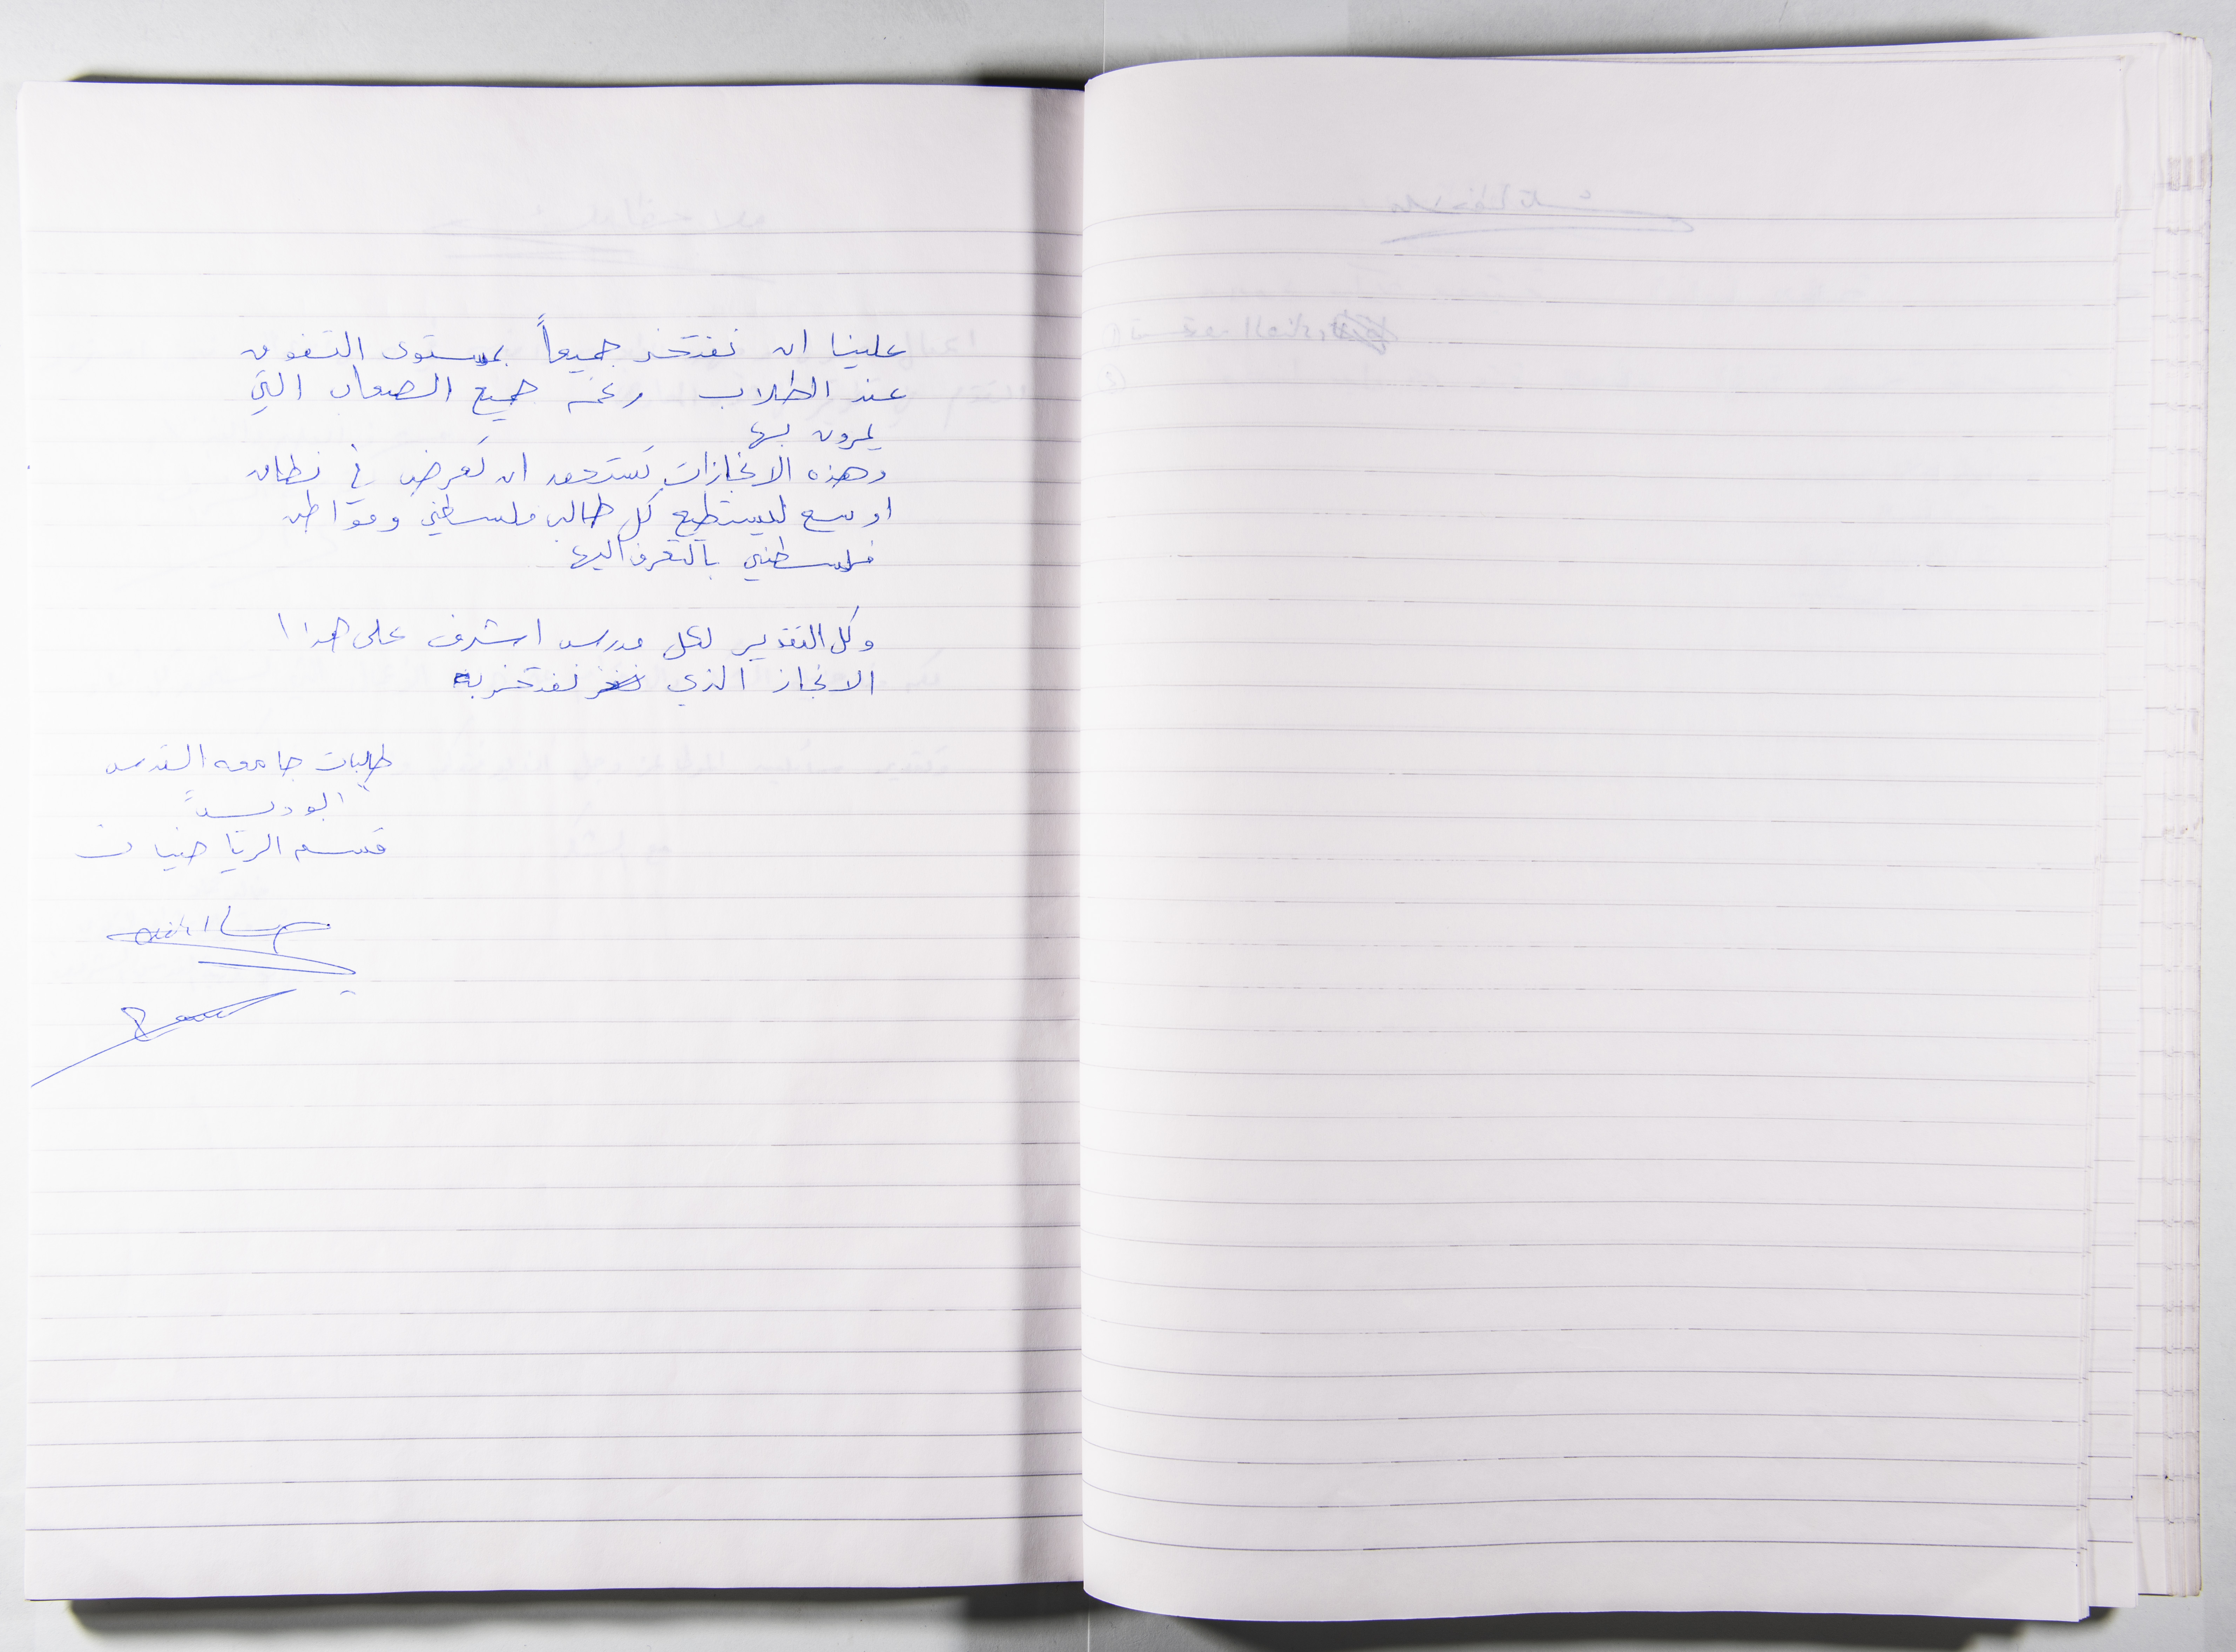 علينا ان نفتخر جميعاً بمستوى التفوق
عند الطلاب رغم جميع الصعاب التي
يمرون بها
وهذه الانجازات تستحق ان تعرض في نطاق
اوسع ليستطيع كل طالب فلسطيني ومواطن
فلسطيني بالتعرف اليها
وكل التقدير لكل مدرس اشرف على هذا
الانجاز الذي نفتخر به
طالبات جامعه القدس
"ابو ديس"
قسم الرياضيات